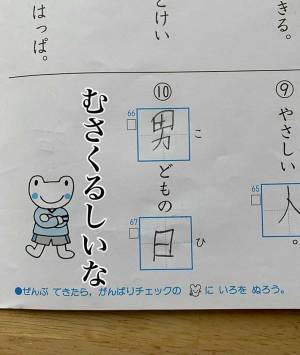 きる。
とけい
はっぱ。
⑨ やさしい
65
人。
⑩
66
男 こ
どもの
67
日 ひ
むさくるしいな
●ぜんぶ できたら、がんばりチェックの に いろを ぬろう。